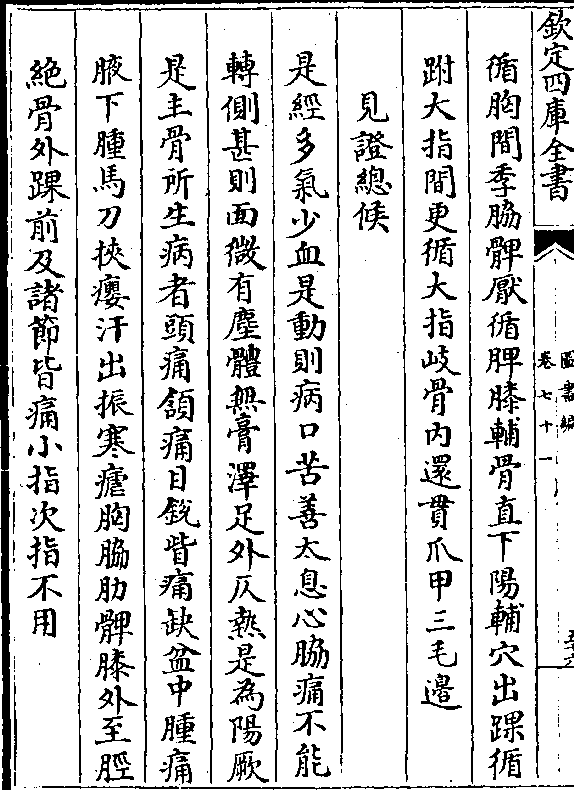 欽定四庫全書
圖書編
卷七十一
循胸間季脇髀厭循脾膝輔骨直下陽輔穴出踝循
跗大指間更循大指岐骨內還貫爪甲三毛邉
見證總候
是經多氣少血是動則病口苦善太息心脇痛不能
轉側甚則面微有塵體無膏澤足外仄熱是為陽厥
是主骨所生病者頭痛頷痛目鋭眥痛缺盆中腫痛
腋下腫馬刀挾癭汗出振寒瘧胸脇肋髀膝外至脛
絶骨外踝前及諸節皆痛小指次指不用